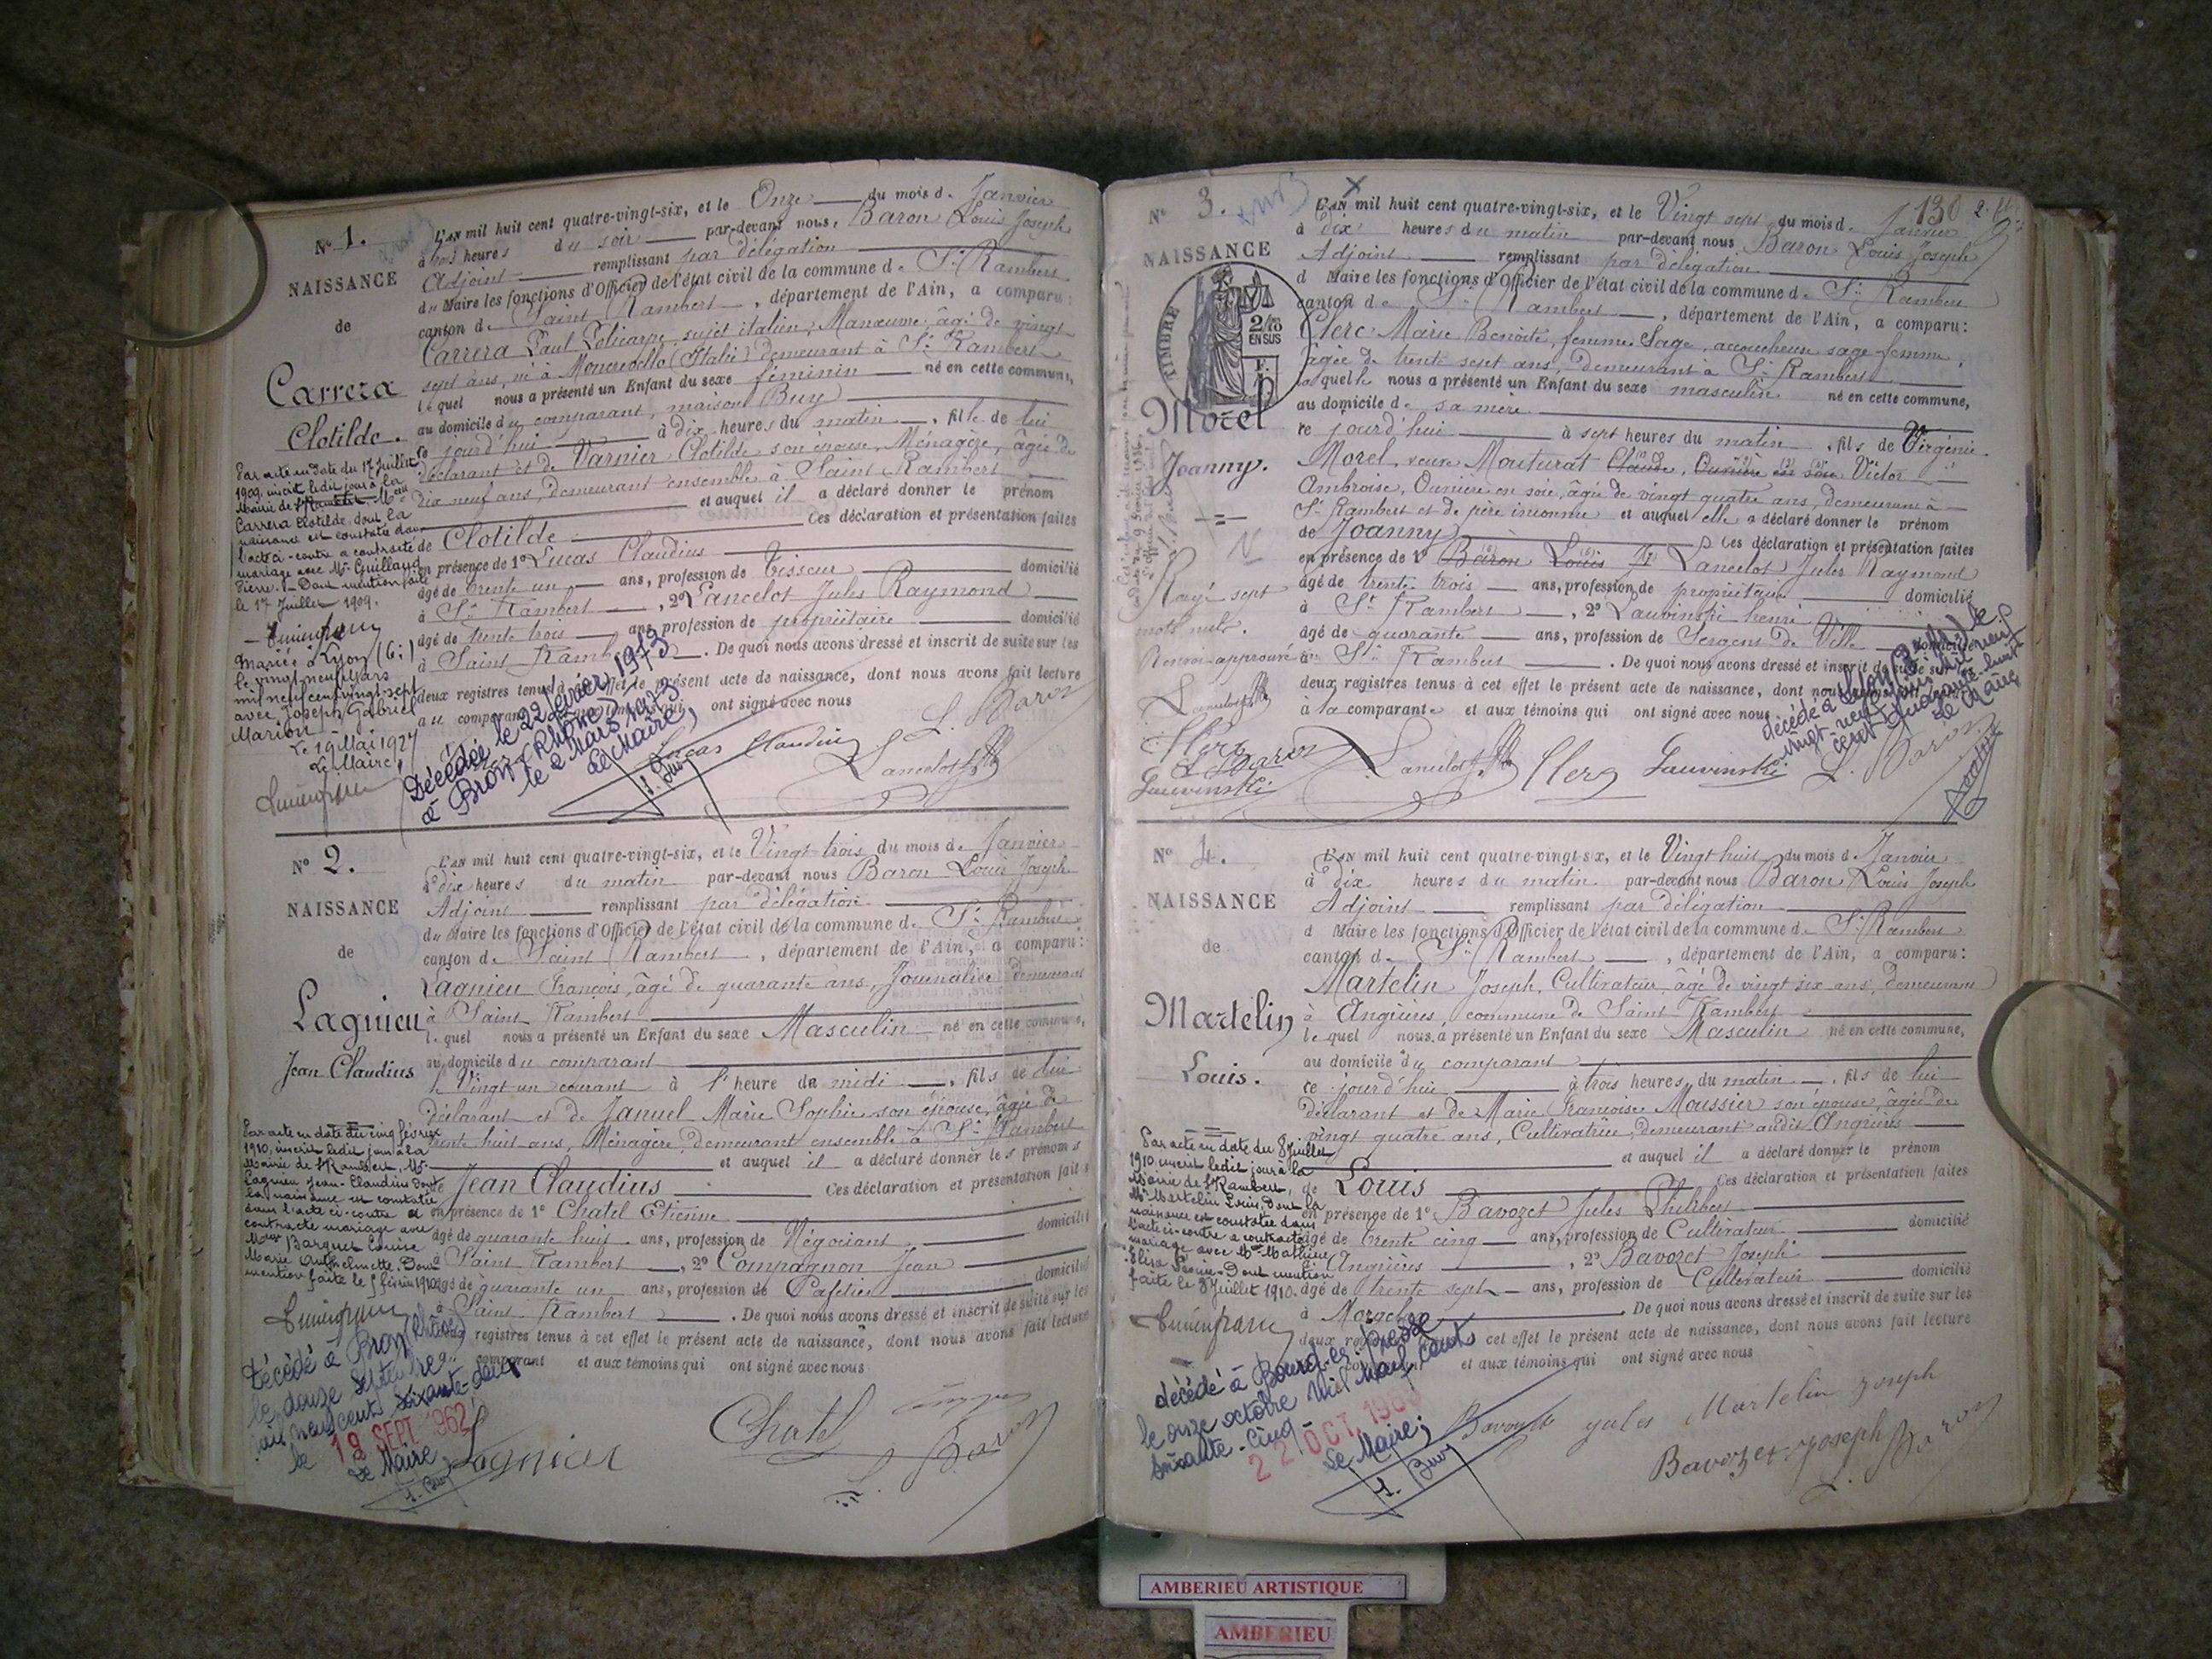 N° 1.
NAISSANCE
de
Carrera
Clotilde.
L'AN mil huit cent quatre-vingt-six, et le Onze du mois d. Janvier
à trois heures du soir par-devant nous, Baron Louis Joseph
Adjoint remplissant par délégation
du Maire les fonctions d'Officier de l'état civil de la commune d. St Rambert
canton d. Saint Rambert, département de l'Ain, a comparu:
Carrera Paul Policarpe, sujet italien, Manœuvre, âgé de vingt
sept ans, né à (Italie) demeurant à St Rambert
lequel nous a présenté un Enfant du sexe féminin né en cette commune,
au domicile du comparant, maison Buy
ce jourd'hui à dix heures du matin, fille de lui
déclarant et de Varnier Clotilde son épouse, Ménagère, âgée de
dix neuf ans, demeurant ensemble à Saint Rambert
et auquel il a déclaré donner le prénom
de Clotilde Ces déclaration et présentation faites
en présence de 1° Lucas Claudius
âgé de trente un ans, profession de Tisseur domicilié
à St Rambert, 2° Lancelot Jules Raymond
âgé de trente trois ans, profession de propriétaire domicilié
à Saint Rambert. De quoi nous avons dressé et inscrit de suite sur les
deux registres tenus à cet effet le présent acte de naissance, dont nous avons fait lecture
au comparant et aux témoins qui ont signé avec nous
Par acte en date du 17 Juillet
1909, inscrit ledit jour à la
Mairie de St Rambert, Melle
Carrera Clotilde, dont la
naissance est constatée dans
l'acte ci-contre a contracté
mariage avec Mr Guilland
Pierre. - Dont mention faite
le 17 Juillet 1909.
Mariés à Lyon (6e)
le vingt neuf Mars
mil neuf cent vingt-sept
avec Joseph Gabriel
Marion
Le 19 Mai 1927
Le Maire,
Décédée le 22 février 1973
à Bron (Rhône)
le 2 Mars 1973
Le Maire,
J. Buy
Lucas Claudius
L. Baron
Lancelot
N° 2.
NAISSANCE
de
Lagnieu
Jean Claudius
L'AN mil huit cent quatre-vingt-six, et le Vingt trois du mois d. Janvier
à dix heures du matin par-devant nous Baron Louis Joseph
Adjoint remplissant par délégation
du Maire les fonctions d'Officier de l'état civil de la commune d. St Rambert
canton d. Saint Rambert, département de l'Ain, a comparu:
Lagnieu François, âgé de quarante ans, Journalier demeurant
à Saint Rambert
lequel nous a présenté un Enfant du sexe Masculin né en cette commune,
au domicile du comparant
le Vingt un courant à l'heure de midi, fils de lui
déclarant et de Januel Marie Sophie son épouse, âgée de
trente huit ans, Ménagère, demeurant ensemble à St Rambert
et auquel il a déclaré donner les prénoms
de Jean Claudius Ces déclaration et présentation faites
en présence de 1° Chatel Etienne
âgé de quarante huit ans, profession de Négociant domicilié
à Saint Rambert, 2° Compagnon Jean
âgé de quarante un ans, profession de Cafetier domicilié
à Saint Rambert. De quoi nous avons dressé et inscrit de suite sur les
registres tenus à cet effet le présent acte de naissance, dont nous avons fait lecture
comparant et aux témoins qui ont signé avec nous
Par acte en date du cinq février
1910, inscrit ledit jour à la
Mairie de St Rambert, Mr
Lagnieu Jean-Claudius dont
la naissance est constatée
dans l'acte ci-contre a
contracté mariage avec
Melle Barquet Louise
Marie Anthelmette. Dont
mention faite le 5 février 1910
Décédé à Bron (Rhône)
le douze Septembre
mil neuf cent soixante-deux
le 18 SEPT 1962
Le Maire
J. Buy
Lagnieu
Chatel
L. Baron
130
N° 3.
NAISSANCE
TIMBRE
2/10
EN SUS
Morel
Joanny.
L'AN mil huit cent quatre-vingt-six, et le Vingt sept du mois d. Janvier
à dix heures du matin par-devant nous Baron Louis Joseph
Adjoint remplissant par délégation
d Maire les fonctions d'Officier de l'état civil de la commune d. St Rambert
canton d. St Rambert, département de l'Ain, a comparu:
Clerc Marie Benoite, femme Sage, accoucheuse sage-femme,
âgée de trente sept ans, demeurant à St Rambert
laquelle nous a présenté un Enfant du sexe masculin né en cette commune,
au domicile de sa mère
ce jourd'hui à sept heures du matin, fils de Virginie
Morel, veuve Mouturat Claude, Ouvrière en soie Victor
Ambroise, Ouvrière en soie, âgée de vingt quatre ans, demeurant à
St Rambert et de père inconnu et auquel elle a déclaré donner le prénom
de Joanny Ces déclaration et présentation faites
en présence de 1° Baron Louis Lancelot Jules Raymond
âgé de trente trois ans, profession de propriétaire domicilié
à St Rambert, 2° Lauvinski henri
âgé de quarante ans, profession de Sergent de Ville domicilié
à St Rambert. De quoi nous avons dressé et inscrit de suite sur les
deux registres tenus à cet effet le présent acte de naissance, dont nous
à la comparante et aux témoins qui ont signé avec nous
Rayé sept
mots nuls.
Renvoi approuvé
Lancelot
Clerc
L. Baron
Lauvinski
Lancelot
Clerc
Lauvinski
L. Baron
décédé à Lyon
vingt neuf
cent quarante-huit
Le Maire
N° 4.
NAISSANCE
de
Martelin
Louis.
L'AN mil huit cent quatre-vingt-six, et le Vingt huit du mois d. Janvier
à dix heures du matin par-devant nous Baron Louis Joseph
Adjoint remplissant par délégation
d Maire les fonctions d'Officier de l'état civil de la commune d. St Rambert
canton d. St Rambert, département de l'Ain, a comparu:
Martelin Joseph, Cultivateur, âgé de vingt six ans, demeurant
à Angrières, commune de Saint Rambert
lequel nous a présenté un Enfant du sexe Masculin né en cette commune,
au domicile du comparant
ce jourd'hui à trois heures du matin, fils de lui
déclarant et de Marie Françoise Moussier son épouse, âgée de
vingt quatre ans, Cultivatrice, demeurant audit Angrières
et auquel il a déclaré donner le prénom
de Louis Ces déclaration et présentation faites
en présence de 1° Bavozet Jules Philibert
âgé de trente cinq ans, profession de Cultivateur domicilié
à Angrières, 2° Bavozet Joseph
âgé de trente sept ans, profession de Cultivateur domicilié
à Morgelas. De quoi nous avons dressé et inscrit de suite sur les
deux registres cet effet le présent acte de naissance, dont nous avons fait lecture
et aux témoins qui ont signé avec nous
Par acte en date du 8 Juillet
1910, inscrit ledit jour à la
Mairie de St Rambert,
Mr Martelin Louis, dont la
naissance est constatée dans
l'acte ci-contre a contracté
mariage avec Melle Mathieu
Elisa Dont mention
faite le 8 Juillet 1910.
décédé à Bourg-en-Bresse
le onze octobre Mil Neuf Cent
Soixante-Cinq
22 OCT 196
Le Maire,
J. Buy
Bavozet jules
Martelin Joseph
Bavozet Joseph
L. Baron
AMBERIEU ARTISTIQUE
AMBERIEU